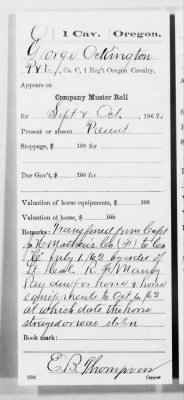 1 Cav. Oregon.
George Ockington
Pvt., Co. C, 1 Reg't Oregon Cavalry.
Appears on
Company Muster Roll
for Sept & Oct, 1862.
Present or absent Present
Stoppage, $ 100 for
Due Gov't, $ 100 for
Valuation of horse equipments, $ 100
Valuation of horse, $ 100
Remarks: Transferred from Capt
Co to Co
"C" July 1, /62 by order of
Lt. Col. R. F. Maury
Pay due for horse & horse
equipments to Oct 6, /62
at which date the horse
strayed or was stolen
Book mark:
E. B. Thompson
Copyist.